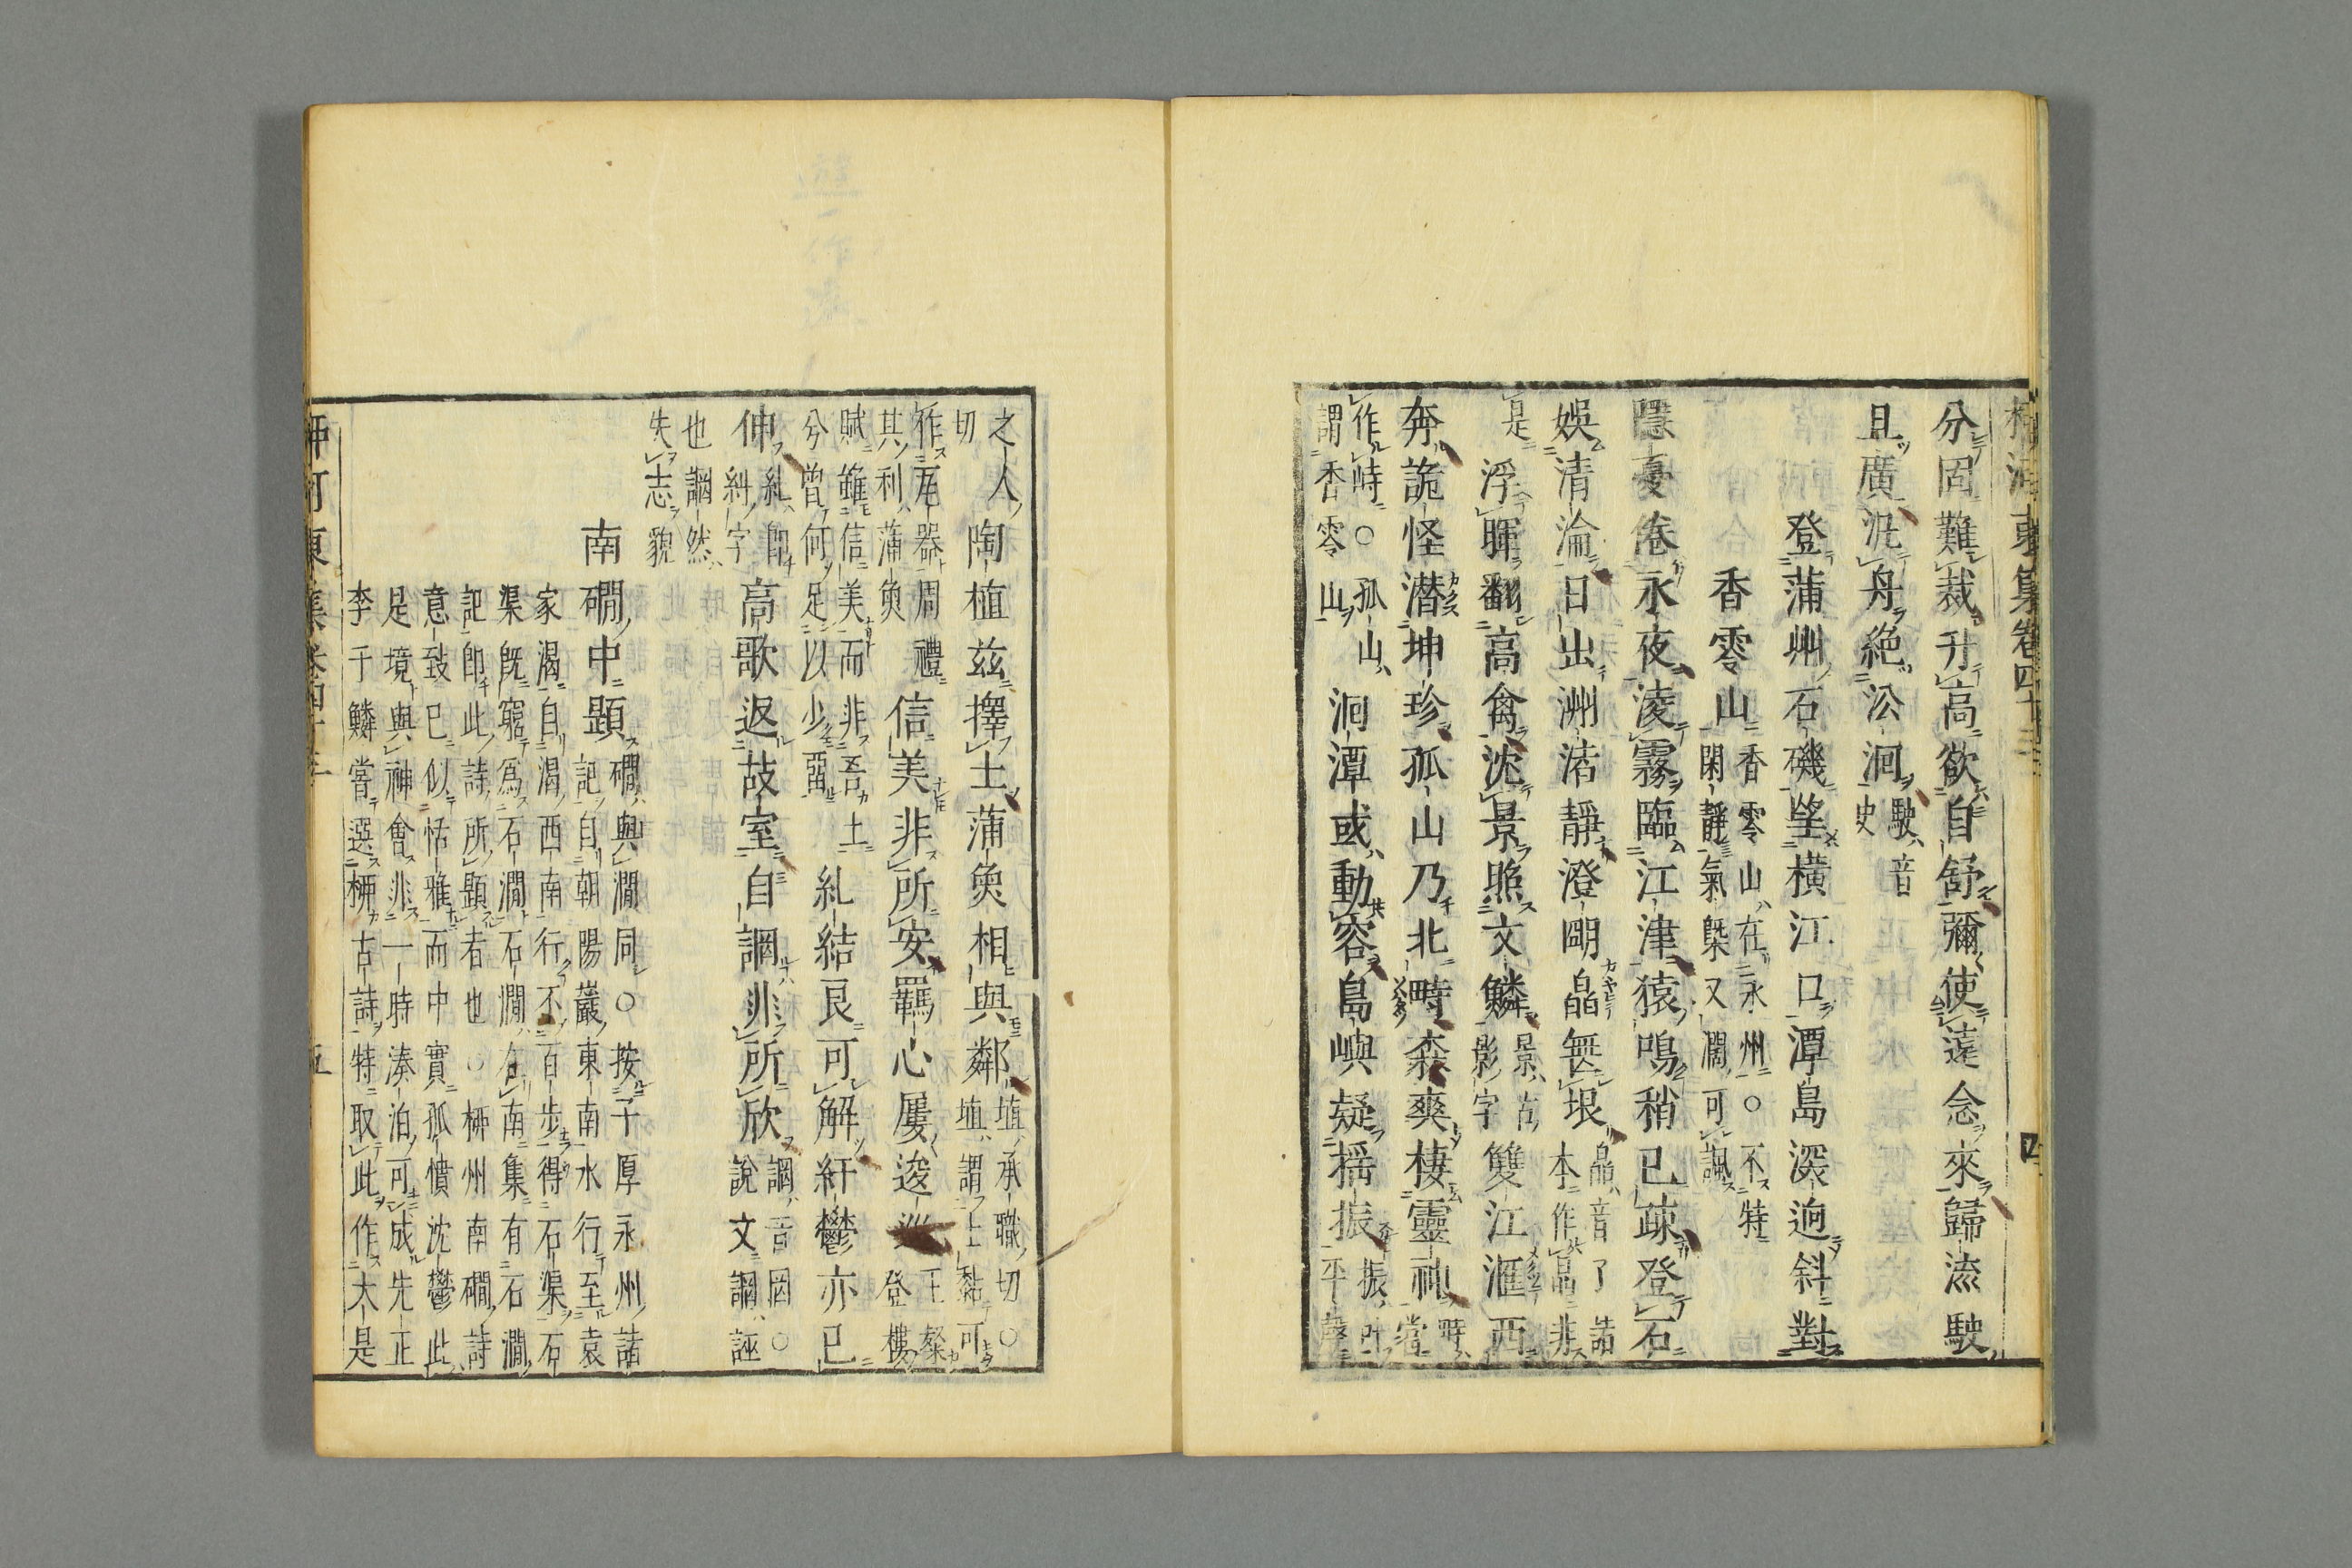 柳河東集卷四十三 四
分固難裁升高欲自舒彌使遠念來歸流駛
且廣汎舟絶沿洄駛音史
登蒲州石磯望橫江口潭島深逈斜對
香零山香零山在永州○不特閑靜氣槩又濶可諷
隱憂倦永夜淩霧臨江津猿鳴稍已疎登石
娛清淪日出洲渚靜澄明晶無垠晶音了諸本作晶非
是浮暉翻高禽沈景照文鱗景古影字雙江滙西
奔詭怪潜坤珍孤山乃北畤森爽棲靈神畤當
作峙○孤山謂香零山洄潭或動容島嶼疑揺振振叶平聲
之人陶植玆擇土蒲魚相與鄰埴承職切○埴謂土黏可
作瓦器周禮其利蒲魚信美非所安羈心屢逡巡王粲登樓
賦雖信美而非吾土兮曽何足以少留糺結良可解紆鬱亦已
伸糺卽糾字高歌返故室自誷非所欣誷音罔○說文誷誣
也誷然失志貌
南磵中題磵與澗同○按子厚永州諸
記自朝陽巖東南水行至袁
家渴自渴西南行不百步得石渠石
渠旣窮爲石澗石澗在南集有石澗
記卽此詩所題者也○柳州南磵詩
意致巳似恬雅而中實孤憤沈鬱此
是境與神會非一時湊泊可成先正
李于鱗嘗選柳古詩特取此作大是
柳河東集卷四十三 五